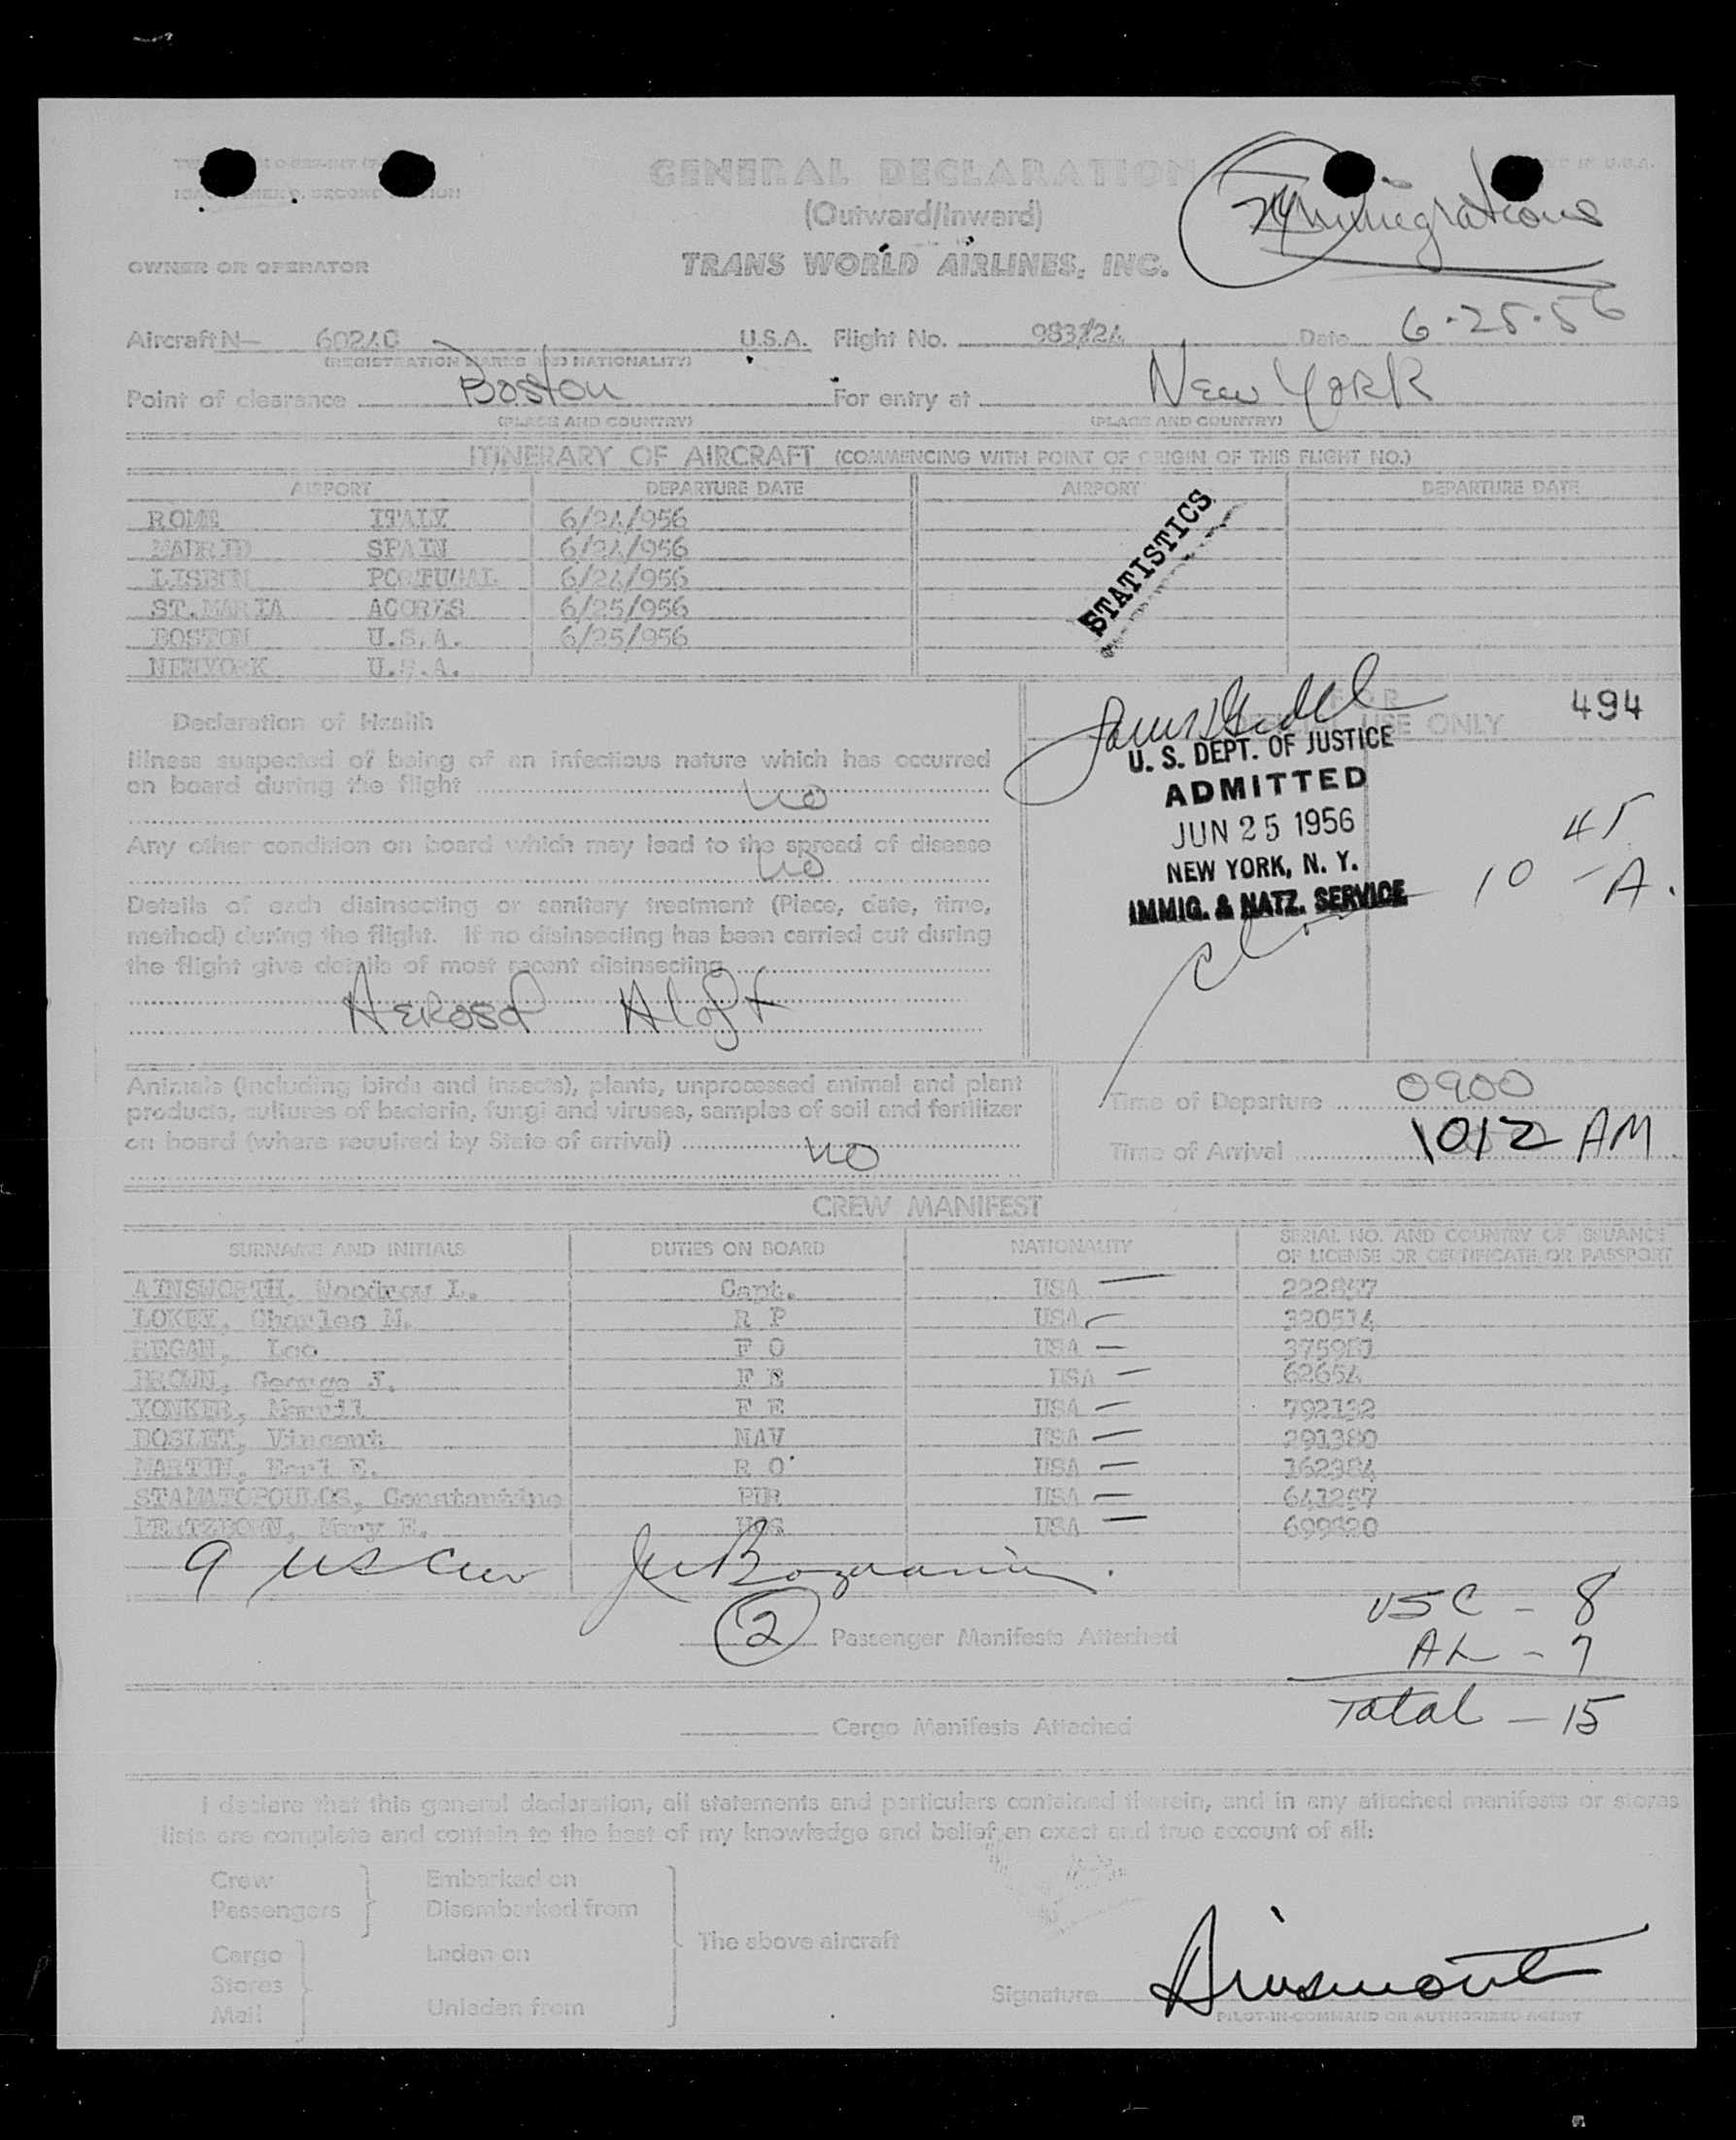 GENERAL DECLARATION
(Outward/Inward)
Immigrations
OWNER OR OPERATOR
TRANS WORLD AIRLINES, INC.
Aircraft N- 6024C U.S.A. Flight No. Date 6-25-56
(REGISTRATION MARKS AND NATIONALITY)
Point of clearance Boston For entry at New York
(PLACE AND COUNTRY) (PLACE AND COUNTRY)
ITINERARY OF AIRCRAFT (COMMENCING WITH POINT OF ORIGIN OF THIS FLIGHT NO.)
AIRPORT DEPARTURE DATE AIRPORT DEPARTURE DATE
ROME ITALY 6/24/956
MADRID SPAIN 6/24/956
LISBON PORTUGAL 6/24/956
ST.MARIA ACORES 6/25/956
BOSTON U.S.A. 6/25/956
NEWYORK U.S.A.
STATISTICS
Declaration of Health
FOR
OFFICIAL USE ONLY
494
Illness suspected of being of an infectious nature which has occurred
on board during the flight no
Any other condition on board which may lead to the spread of disease
no
Details of each disinsecting or sanitary treatment (Place, date, time,
method) during the flight. If no disinsecting has been carried out during
the flight give details of most recent disinsecting
Aerosol Aloft
U. S. DEPT. OF JUSTICE
ADMITTED
JUN 25 1956
NEW YORK, N. Y.
IMMIG. & NATZ. SERVICE
45
10 - A.
Animals (including birds and insects), plants, unprocessed animal and plant
products, cultures of bacteria, fungi and viruses, samples of soil and fertilizer
on board (where required by State of arrival) no
Time of Departure 0900
Time of Arrival 1012 AM
CREW MANIFEST
SURNAME AND INITIALS DUTIES ON BOARD NATIONALITY SERIAL NO. AND COUNTRY OF ISSUANCE
OF LICENSE OR CERTIFICATE OR PASSPORT
AINSWORTH, Woodrow L. Capt. USA
LOKEY, Charles M. R P USA 320514
REGAN, Leo F O USA
BROWN, George J. F E USA 62654
YONKER, Merril F E USA 792132
BOSLET, Vincent NAV USA 291380
MARTIN, Earl E. R O USA
STAMATOPOULOS, Constantine PUR USA
Mary E. HOS USA
9 US Crew
2 Passenger Manifests Attached
USC - 8
AL - 7
Total - 15
Cargo Manifests Attached
I declare that this general declaration, all statements and particulars contained therein, and in any attached manifests or stores
lists are complete and contain to the best of my knowledge and belief an exact and true account of all:
Crew Embarked on
Passengers Disembarked from
Cargo Laden on
Stores
Mail Unladen from
The above aircraft
Signature Ainsworth
PILOT-IN-COMMAND OR AUTHORIZED AGENT